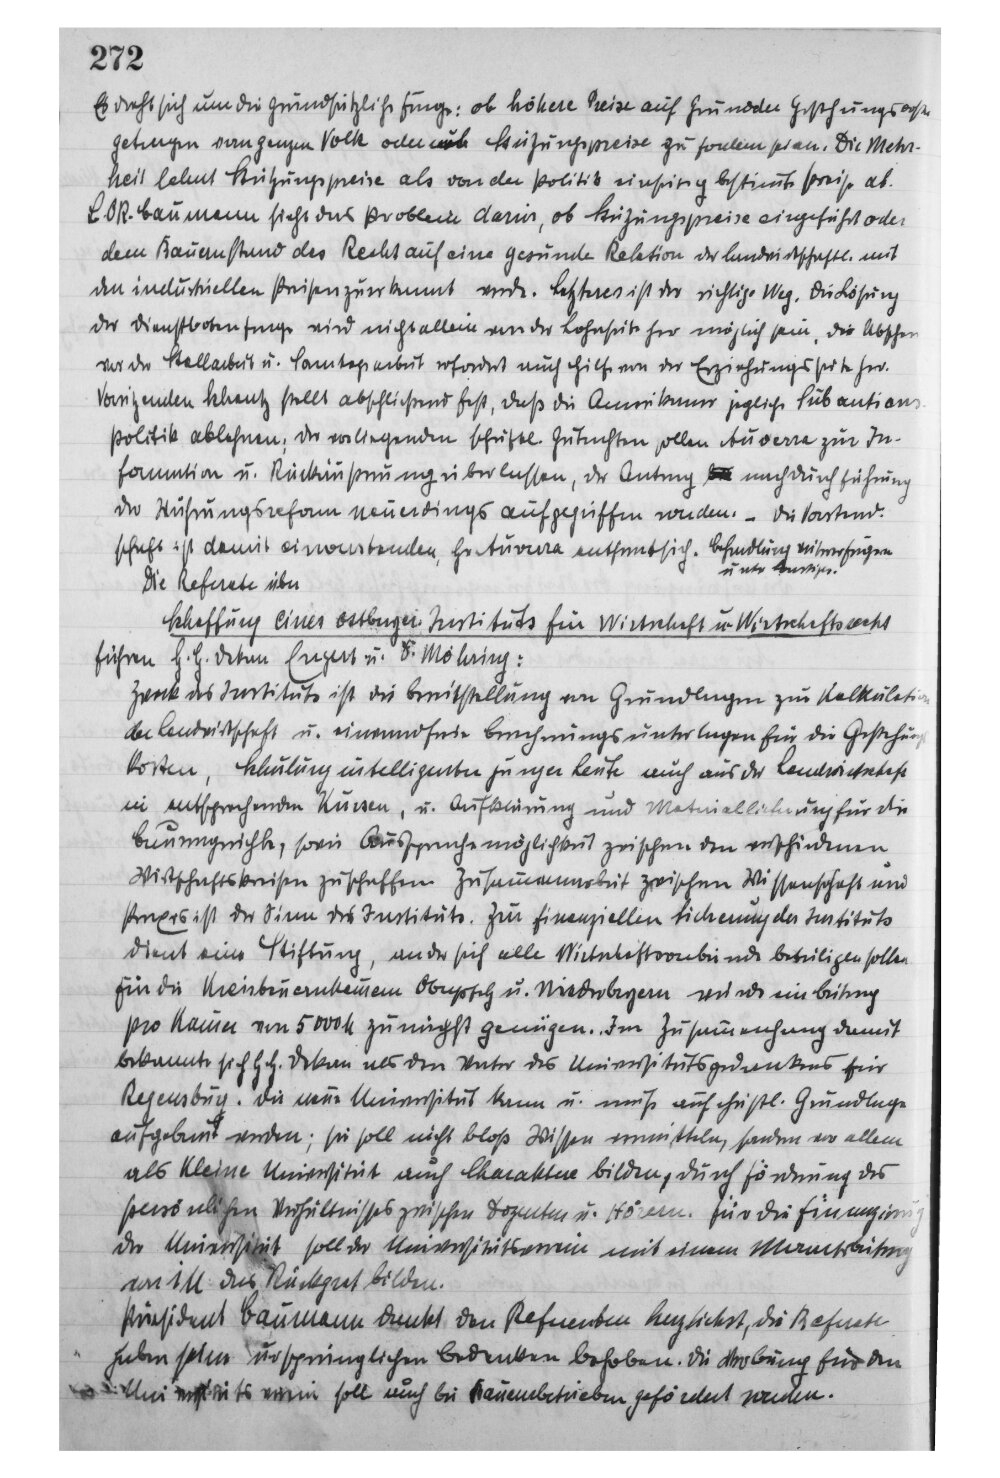 272
Es dreht sich um die grundsätzliche Frage: ob höhere Preise auf Grund der Gestehungskosten
getragen vom ganzen Volk oder ob Stützungspreise zu fordern seien. Die Mehr-
heit lehnt Stützungspreise als von der Politik einseitig bestimmte Preise ab.
L.OR. Baumann sieht das Problem darin, ob Stützungspreise eingeführt oder
dem Bauernstand das Recht auf eine gesunde Relation der landwirtschaftl. mit
den industriellen Preisen zuerkannt werde. Letzteres ist der richtige Weg. Die Lösung
der Dienstbotenfrage wird nicht allein von der Lohnseite her möglich sein, die Abscheu
vor der Stallarbeit u. Samstagsarbeit erfordert auch Hilfe von der Erziehungsseite her.
Vorsitzender stellt abschließend fest, daß die Amerikaner jegliche Subventions-
politik ablehnen; die vorliegenden schriftl. Gutachten sollen Auvera zur In-
formation u. Rückäußerung überlassen, der Antrag nach Durchführung
der Währungsreform neuerdings aufgegriffen werden. – Die Vorstand-
schaft ist damit einverstanden, H. Auvera entfernt sich. Behandlung
unter
Die Referate über
Schaffung eines ostbayer. Instituts für Wirtschaft u. Wirtschaftsrecht
führen H.H. Dekan u. Dr. Möhring:
Zweck des Instituts ist die Bereitstellung von Grundlagen zur Kalkulation
der Landwirtschaft u. einwandfreie Berechnungsunterlagen für die Gestehungs
kosten, Schulung intelligenter junger Leute auch aus der Landwirtschaft
in entsprechenden Kursen, u. Aufklärung und Materiallieferung für die
Bauerngerichte, sowie Aussprachemöglichkeit zwischen den verschiedenen
Wirtschaftskreisen zu schaffen. Zusammenarbeit zwischen Wissenschaft und
Praxis ist der Sinn des Instituts. Zur finanziellen Sicherung des Instituts
dient eine Stiftung, an der sich alle Wirtschaftsverbände beteiligen sollen
Für die Kreisbauernkammern Oberpfalz u. Niederbayern würde ein Beitrag
pro Kammer von 5000 M zunächst genügen. Im Zusammenhang damit
bekannte sich H.H. Dekan als den Vater des Universitätsgedankens für
Regensburg. Die neue Universität kann u. muß auf christl. Grundlage
aufgebaut werden; sie soll nicht bloß Wissen vermitteln, sondern vor allem
als kleine Universität auch Charaktere bilden, durch Förderung des
persönlichen Verhältnisses zwischen Dozenten u. Hörern. Für die Finanzierung
der Universität soll der Universitätsverein mit einem Monatsbeitrag
von 1 M das Rückgrat bilden.
Präsident Baumann dankt den Referenten herzlichst, die Referate
haben seine ursprünglichen Bedenken behoben. Die Werbung für den
Universitätsverein soll auch bei Bauernbetrieben gefördert werden.